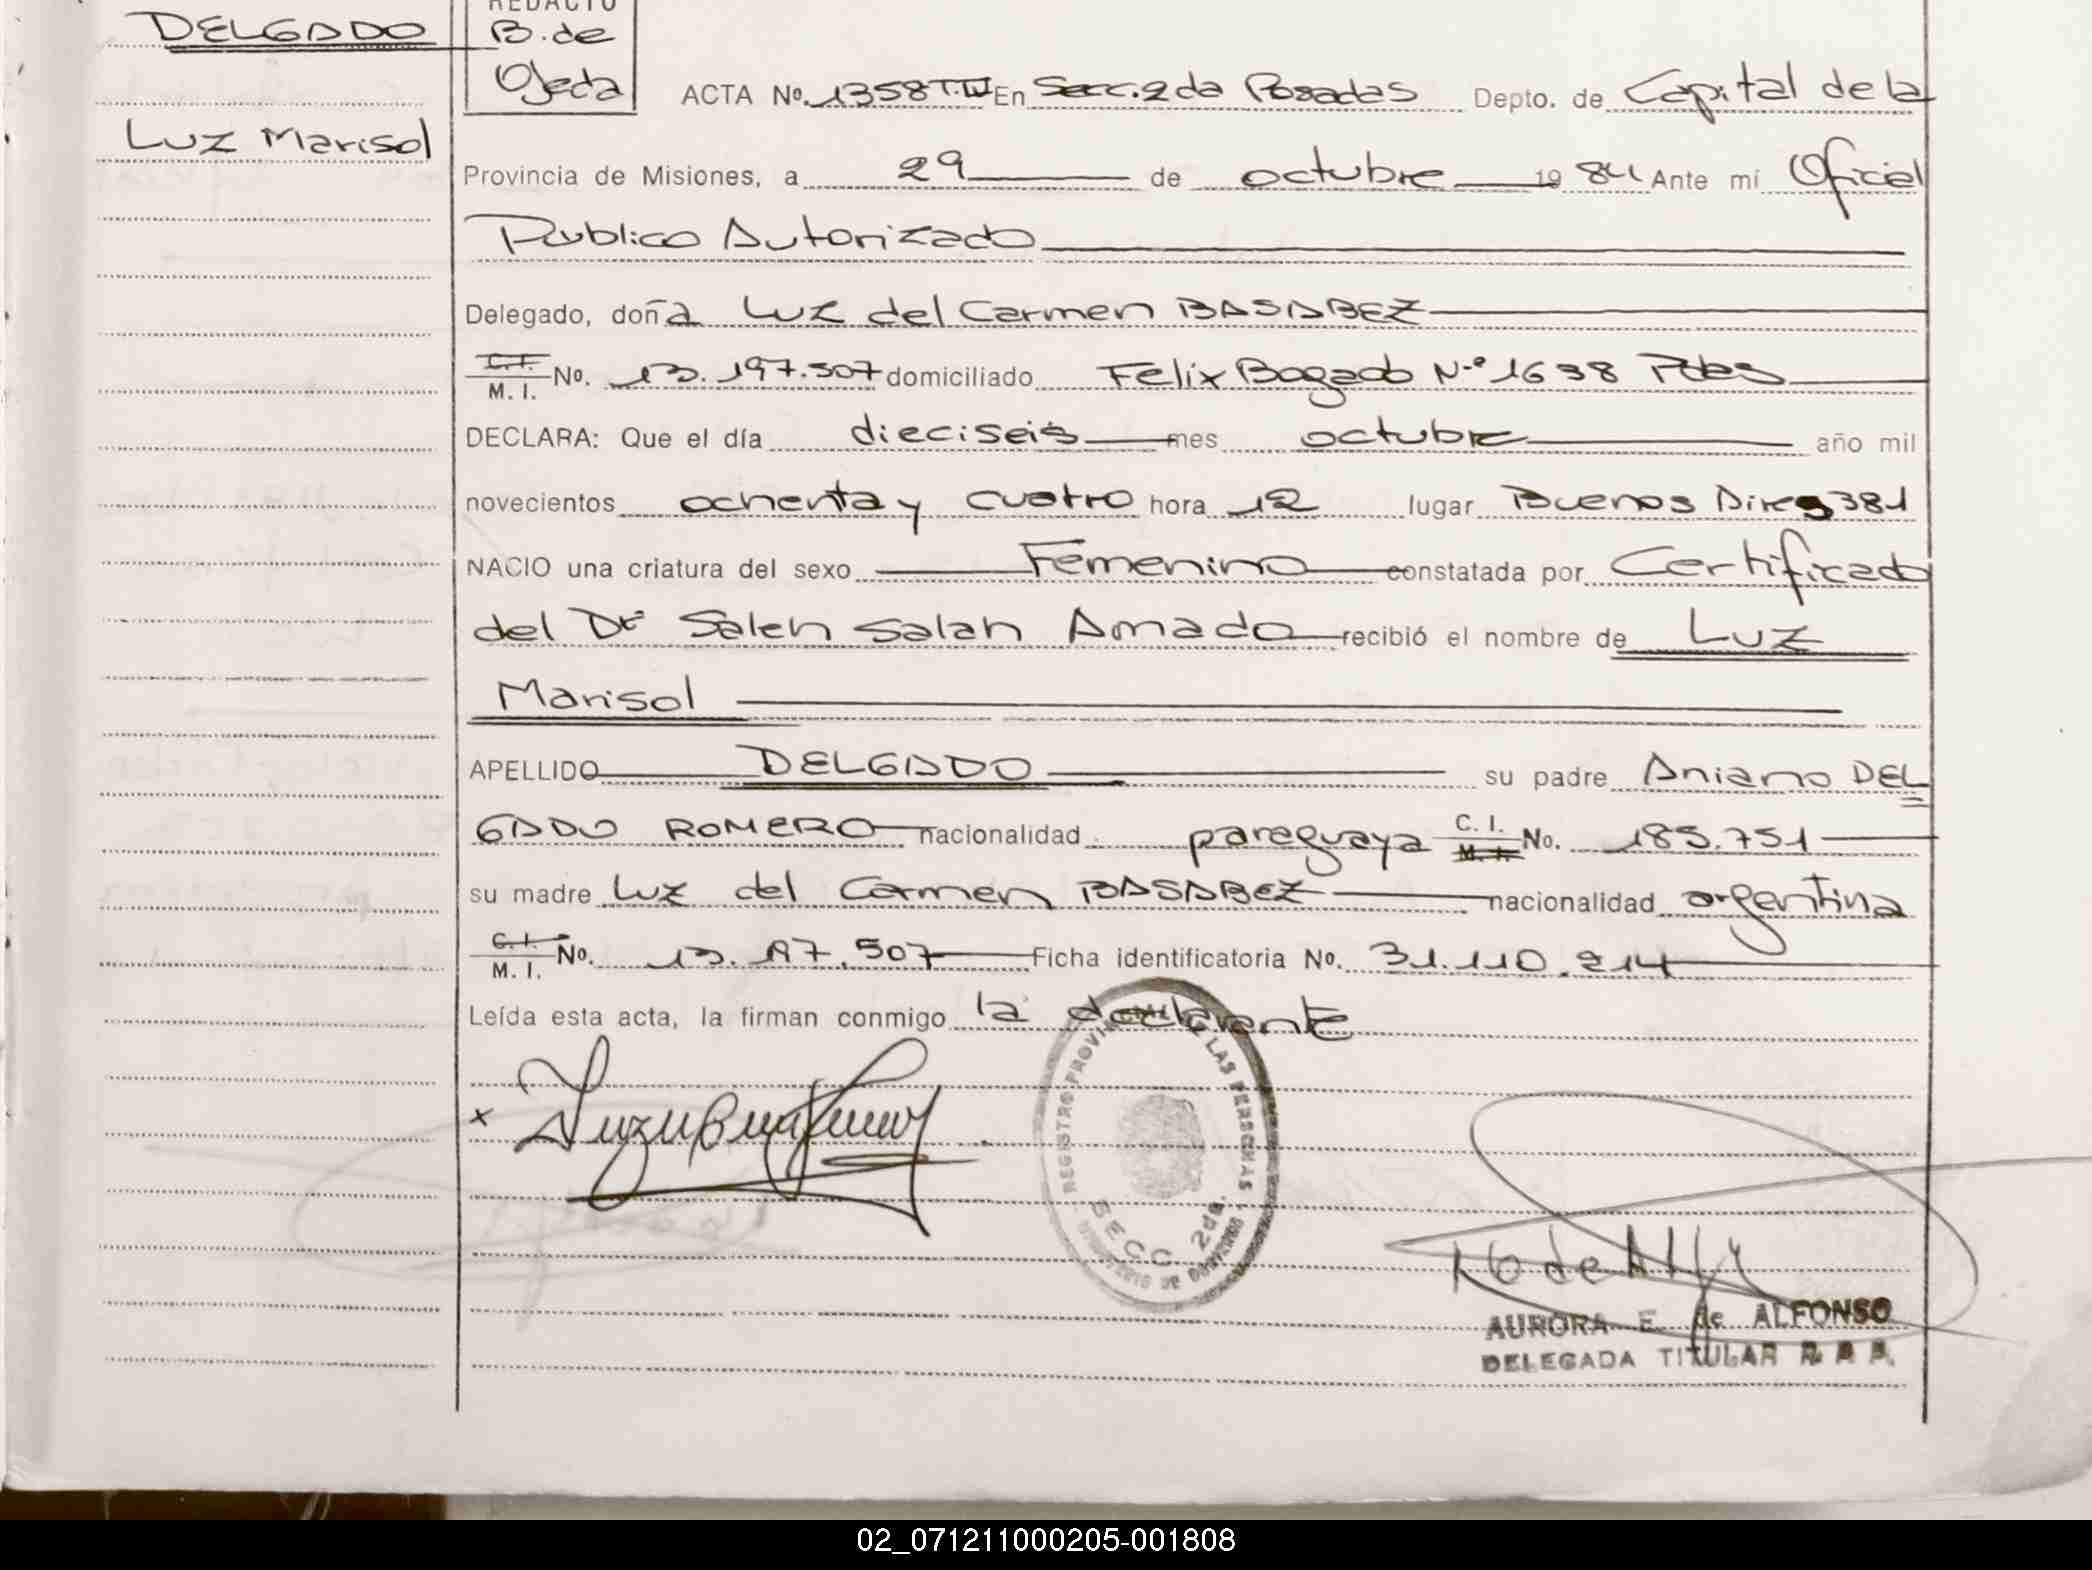 DELGADO
Luz Marisol
REDACTO
B. de
Ojeda
ACTA No. 1358 T. IV En Secc. 2da Posadas Depto. de Capital de la
Provincia de Misiones, a 29 de octubre 1984 Ante mí Oficial
Publico Autorizado
Delegado, doña Luz del Carmen BASABEZ
C. I. M. I. No. 13.197.507 domiciliado Felix Bogado Nº 1638 Pdas
DECLARA: Que el día dieciseis mes octubre año mil
novecientos ochenta y cuatro hora 12 lugar Buenos Aires 381
NACIO una criatura del sexo Femenino constatada por Certificado
del Dr Saleh Salah Amado recibió el nombre de Luz
Marisol
APELLIDO DELGADO su padre Aniano DEL
GADO ROMERO nacionalidad paraguaya C. I. M. I. No. 185.751
su madre Luz del Carmen BASABEZ nacionalidad argentina
C. I. M. I. No. 13.197.507 Ficha identificatoria No. 31.110.214
Leída esta acta, la firman conmigo la declarante
REGISTRO PROVINCIAL DE LAS PERSONAS
SECC 2da.
MINISTERIO DE GOBIERNO
AURORA E. de ALFONSO
DELEGADA TITULAR R. P. P.
02_071211000205-001808